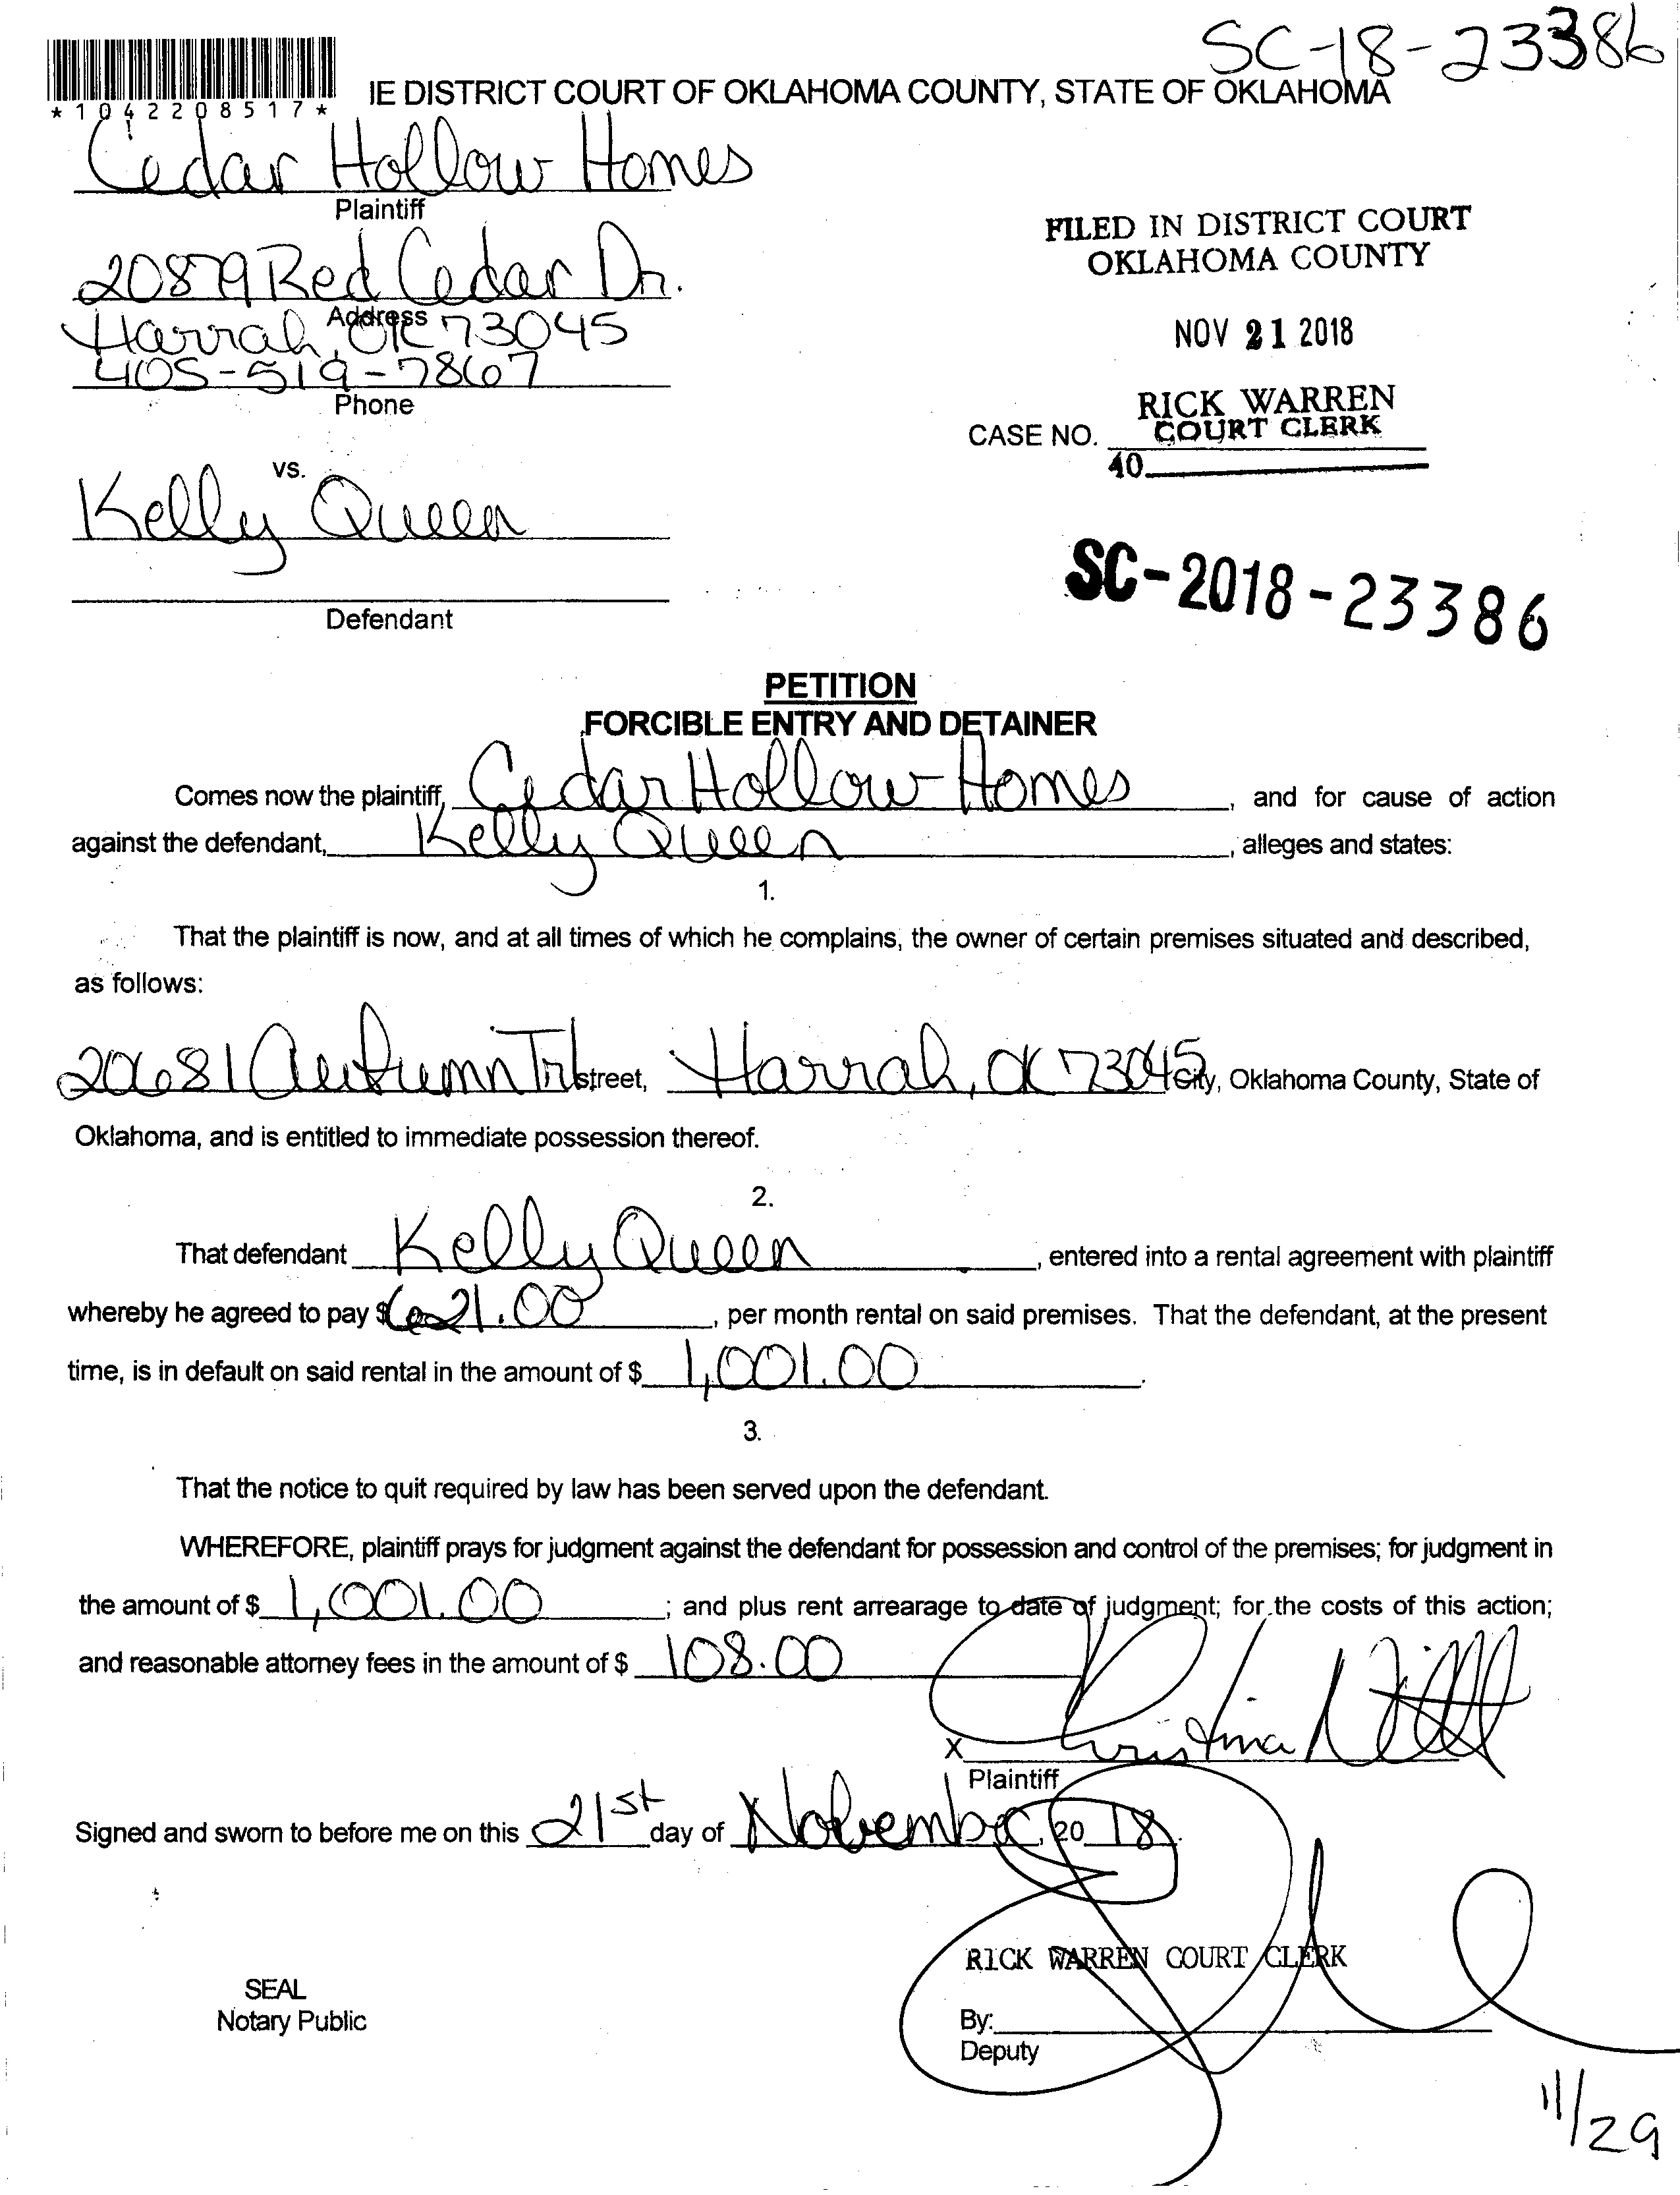 SC-18-23386
*1042208517*
IE DISTRICT COURT OF OKLAHOMA COUNTY, STATE OF OKLAHOMA
Cedar Hollow Homes
Plaintiff
FILED IN DISTRICT COURT
OKLAHOMA COUNTY
20879 Red Cedar Dr.
Address
Harrah, OK 73045
NOV 21 2018
405-519-7867
Phone
RICK WARREN
COURT CLERK
CASE NO.
40
vs.
Kelly Queen
SC-2018-23386
Defendant
PETITION
FORCIBLE ENTRY AND DETAINER
Comes now the plaintiff, Cedar Hollow Homes, and for cause of action
against the defendant, Kelly Queen, alleges and states:
1.
That the plaintiff is now, and at all times of which he complains, the owner of certain premises situated and described,
as follows:
20681 Autumn Trl street, Harrah, OK 73045 City, Oklahoma County, State of
Oklahoma, and is entitled to immediate possession thereof.
2.
That defendant Kelly Queen, entered into a rental agreement with plaintiff
whereby he agreed to pay $621.00, per month rental on said premises. That the defendant, at the present
time, is in default on said rental in the amount of $ 1,001.00.
3.
That the notice to quit required by law has been served upon the defendant.
WHEREFORE, plaintiff prays for judgment against the defendant for possession and control of the premises; for judgment in
the amount of $ 1,001.00; and plus rent arrearage to date of judgment; for the costs of this action;
and reasonable attorney fees in the amount of $ 108.00
X Christina
Plaintiff
Signed and sworn to before me on this 21st day of November, 20 18.
RICK WARREN COURT CLERK
SEAL
Notary Public
By:
Deputy
11/29